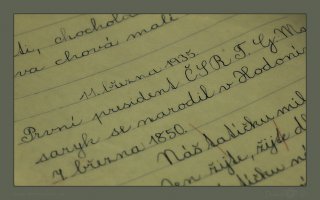 ti, chochola
va chová malé
11. března 1935.
První president ČSR T. G. Ma
saryk se narodil v Hodoní
7. března 1850.
Náš tatíčku mil
Jen žijte, žijte dl
tatíčku n